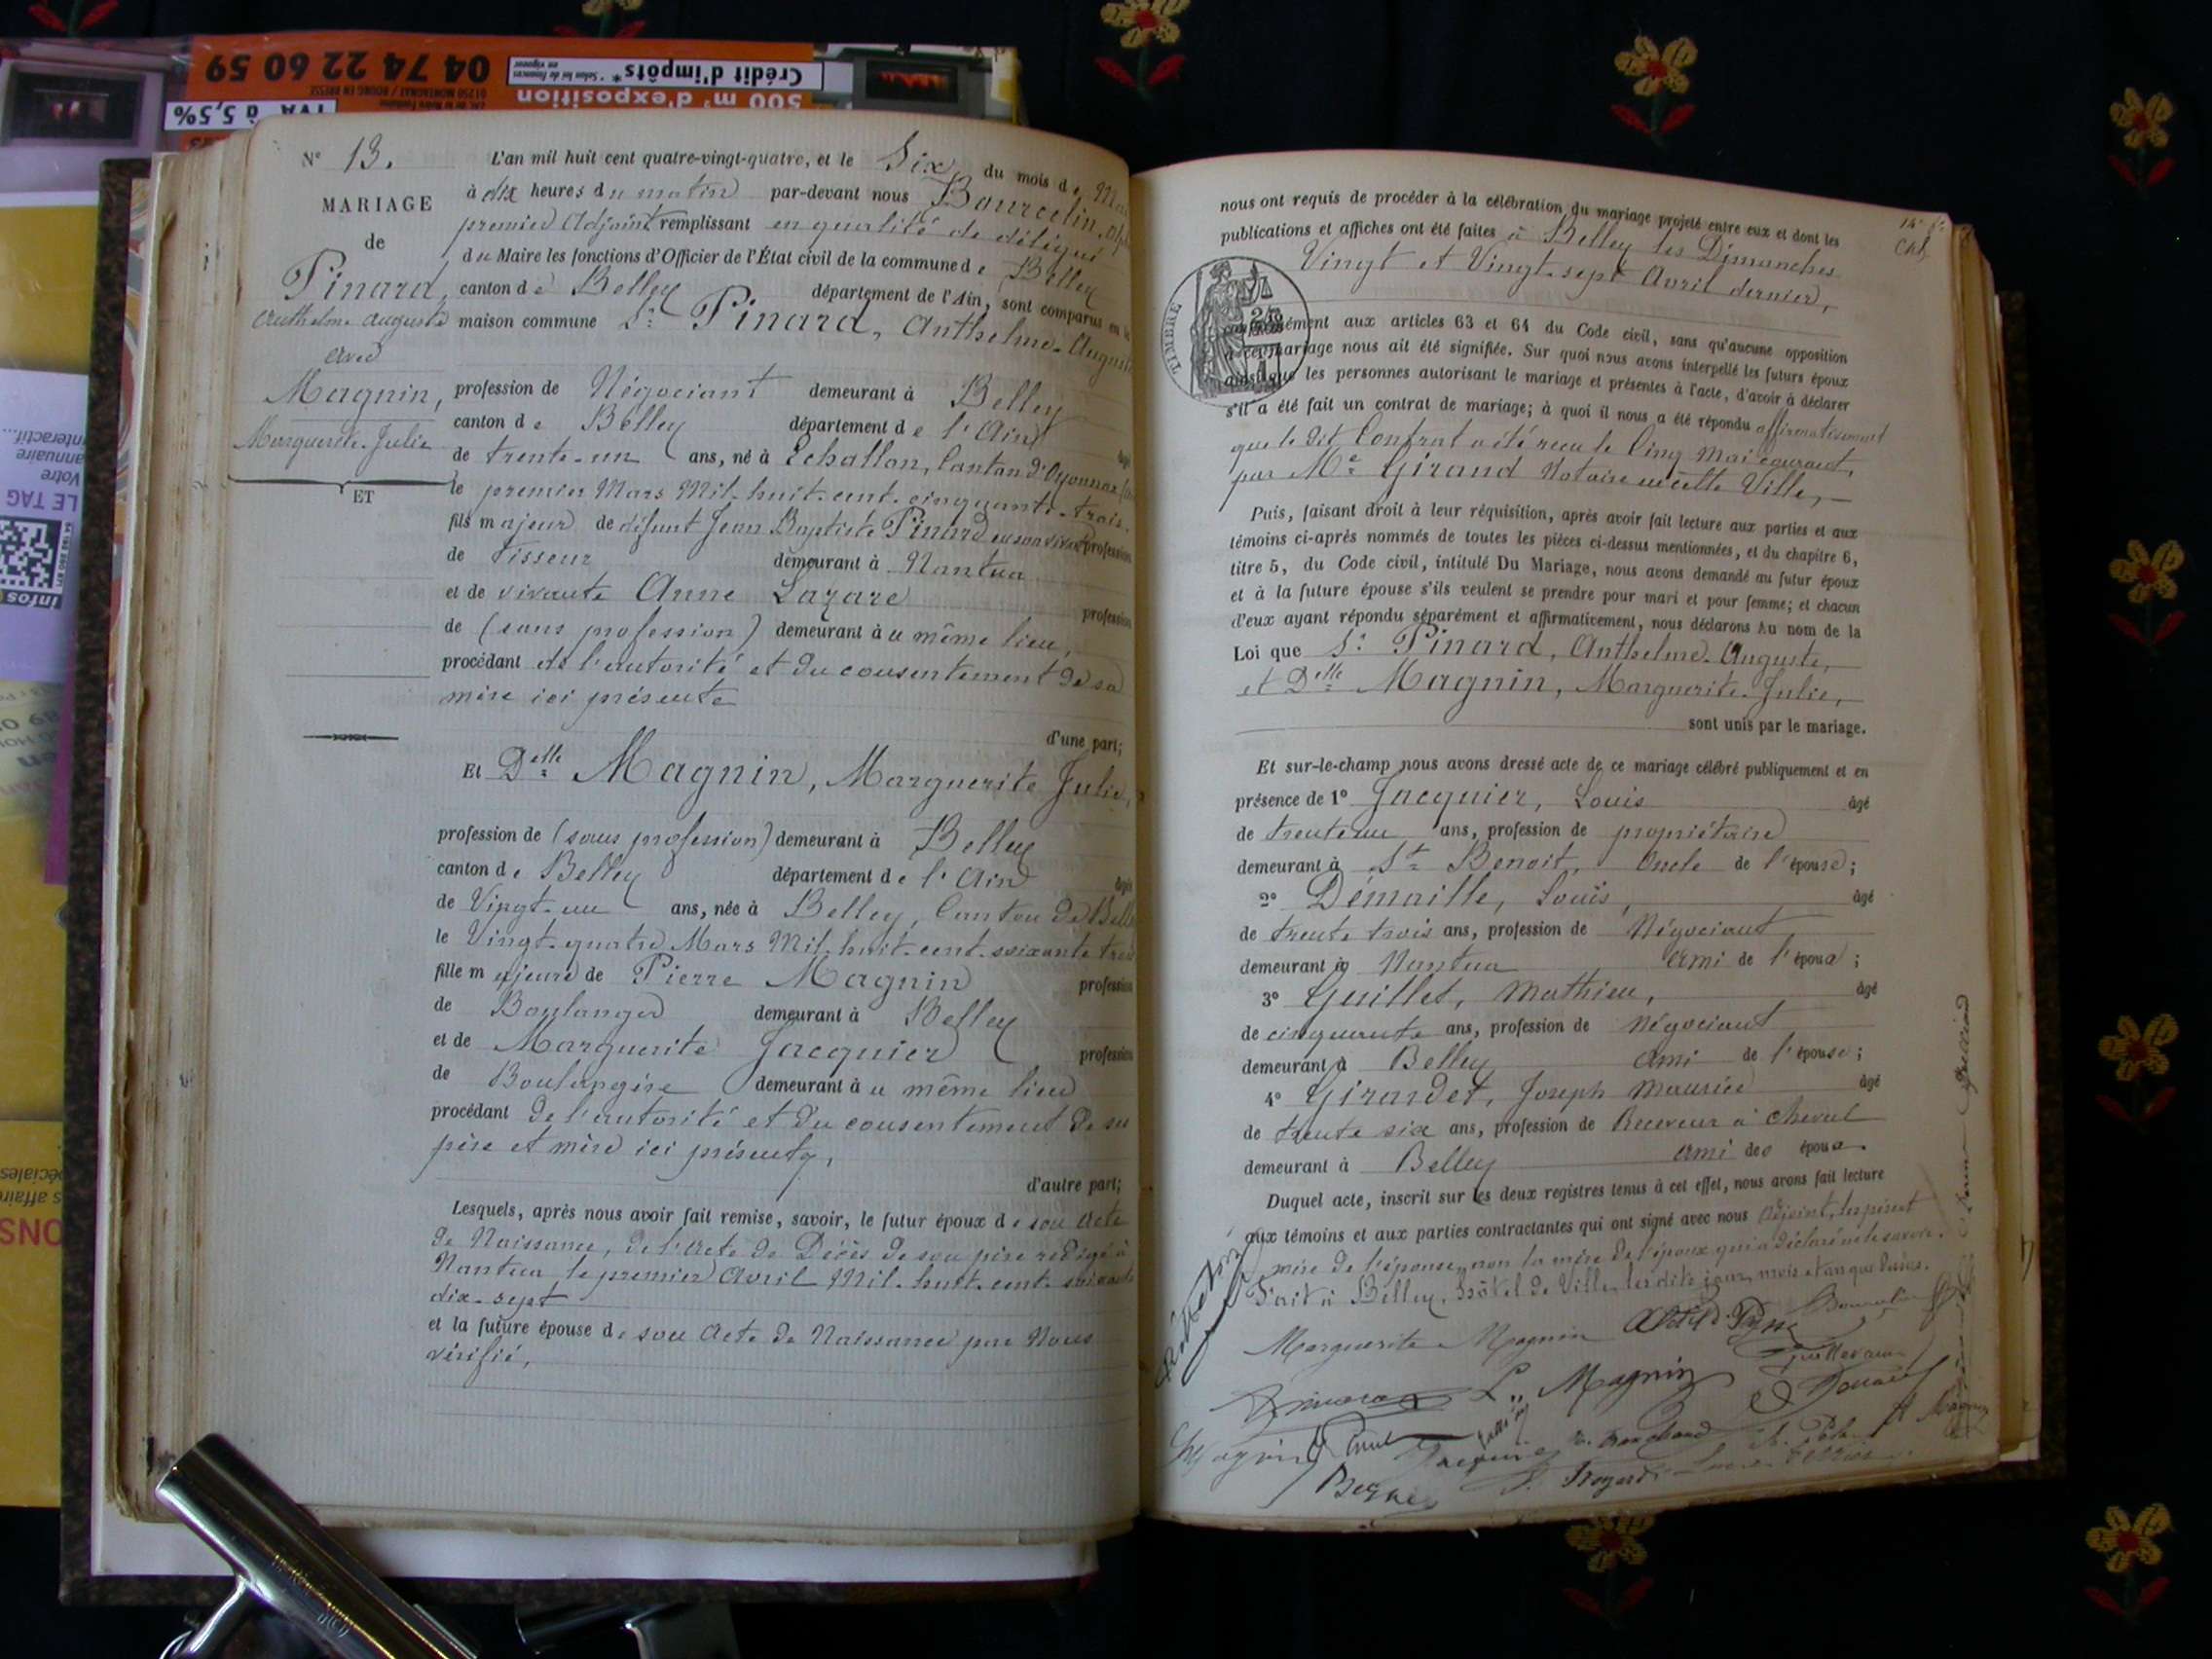 04 74 22 60 59
Crédit d'impôts*
* Selon loi de finances
en vigueur
01250 MONTAGNAT / BOURG EN BRESSE
500 m² d'exposition
TVA à 5,5%
interactif...
annuaire
Votre
LE TAG
infos
N° 13.
MARIAGE
de
Pinard,
Anthelme Auguste
avec
Magnin,
Marguerite-Julie
ET
L'an mil huit cent quatre-vingt-quatre, et le Six du mois de Mai
à dix heures du matin par-devant nous Bourcelin,
premier Adjoint remplissant en qualité de délégué
du Maire les fonctions d'Officier de l'État civil de la commune de Belley
canton de Belley département de l'Ain, sont comparus en la
maison commune Sr Pinard, Anthelme-Auguste
profession de Négociant demeurant à Belley
canton de Belley département de l'Ain âgé
de trente-un ans, né à Echallon, Canton d'Oyonnax
le premier Mars Mil-huit-cent-cinquante-trois.
fils majeur de défunt Jean Baptiste Pinard en son vivant profession
de Tisseur demeurant à Nantua
et de vivante Anne Lazare profession
de (sans profession) demeurant au même lieu,
procédant de l'autorité et du consentement de sa
mère ici présente
d'une part;
Et Delle Magnin, Marguerite Julie,
profession de (sans profession) demeurant à Belley
canton de Belley département de l'Ain âgée
de Vingt-un ans, née à Belley, Canton de Belley
le Vingt-quatre Mars Mil-huit-cent-soixante trois
fille majeure de Pierre Magnin profession
de Boulanger demeurant à Belley
et de Marguerite Jacquier profession
de Boulangère demeurant au même lieu
procédant de l'autorité et du consentement de ses
père et mère ici présents,
d'autre part;
Lesquels, après nous avoir fait remise, savoir, le futur époux de son acte
de Naissance, de l'acte de Décès de son père rédigé à
Nantua le premier Avril Mil-huit-cent-soixante
dix-sept
et la future épouse de son Acte de Naissance par Nous
vérifié,
nous ont requis de procéder à la célébration du mariage projeté entre eux et dont les
publications et affiches ont été faites à Belley les Dimanches
Vingt et Vingt-sept Avril dernier,
TIMBRE
conformément aux articles 63 et 64 du Code civil, sans qu'aucune opposition
à ce mariage nous ait été signifiée. Sur quoi nous avons interpellé les futurs époux
ainsi que les personnes autorisant le mariage et présentes à l'acte, d'avoir à déclarer
s'il a été fait un contrat de mariage; à quoi il nous a été répondu affirmativement
que le dit Contrat a été reçu le Cinq Mai courant,
par Me Giraud Notaire en cette Ville,
Puis, faisant droit à leur réquisition, après avoir fait lecture aux parties et aux
témoins ci-après nommés de toutes les pièces ci-dessus mentionnées, et du chapitre 6,
titre 5, du Code civil, intitulé Du Mariage, nous avons demandé au futur époux
et à la future épouse s'ils veulent se prendre pour mari et pour femme; et chacun
d'eux ayant répondu séparément et affirmativement, nous déclarons Au nom de la
Loi que Sr Pinard, Anthelme-Auguste,
et Delle Magnin, Marguerite-Julie,
sont unis par le mariage.
Et sur-le-champ nous avons dressé acte de ce mariage célébré publiquement et en
présence de 1° Jacquier, Louis âgé
de trente un ans, profession de propriétaire
demeurant à St Benoit, Oncle de l'épouse;
2° Démaille, Louis, âgé
de trente trois ans, profession de Négociant
demeurant à Nantua ami de l'époux;
3° Guillet, Mathieu, âgé
de cinquante ans, profession de Négociant
demeurant à Belley ami de l'épouse;
4° Girardet, Joseph Maurice âgé
de trente six ans, profession de Receveur à Cheval
demeurant à Belley ami des époux.
Duquel acte, inscrit sur les deux registres tenus à cet effet, nous avons fait lecture
aux témoins et aux parties contractantes qui ont signé avec nous Adjoint, les père et
mère de l'épouse, non la mère de l'époux qui a déclaré ne le savoir.
Fait à Belley, Hôtel de Ville, les dits jour, mois et an que dessus.
Marguerite Magnin
L. Magnin
Magnin
Jacquier